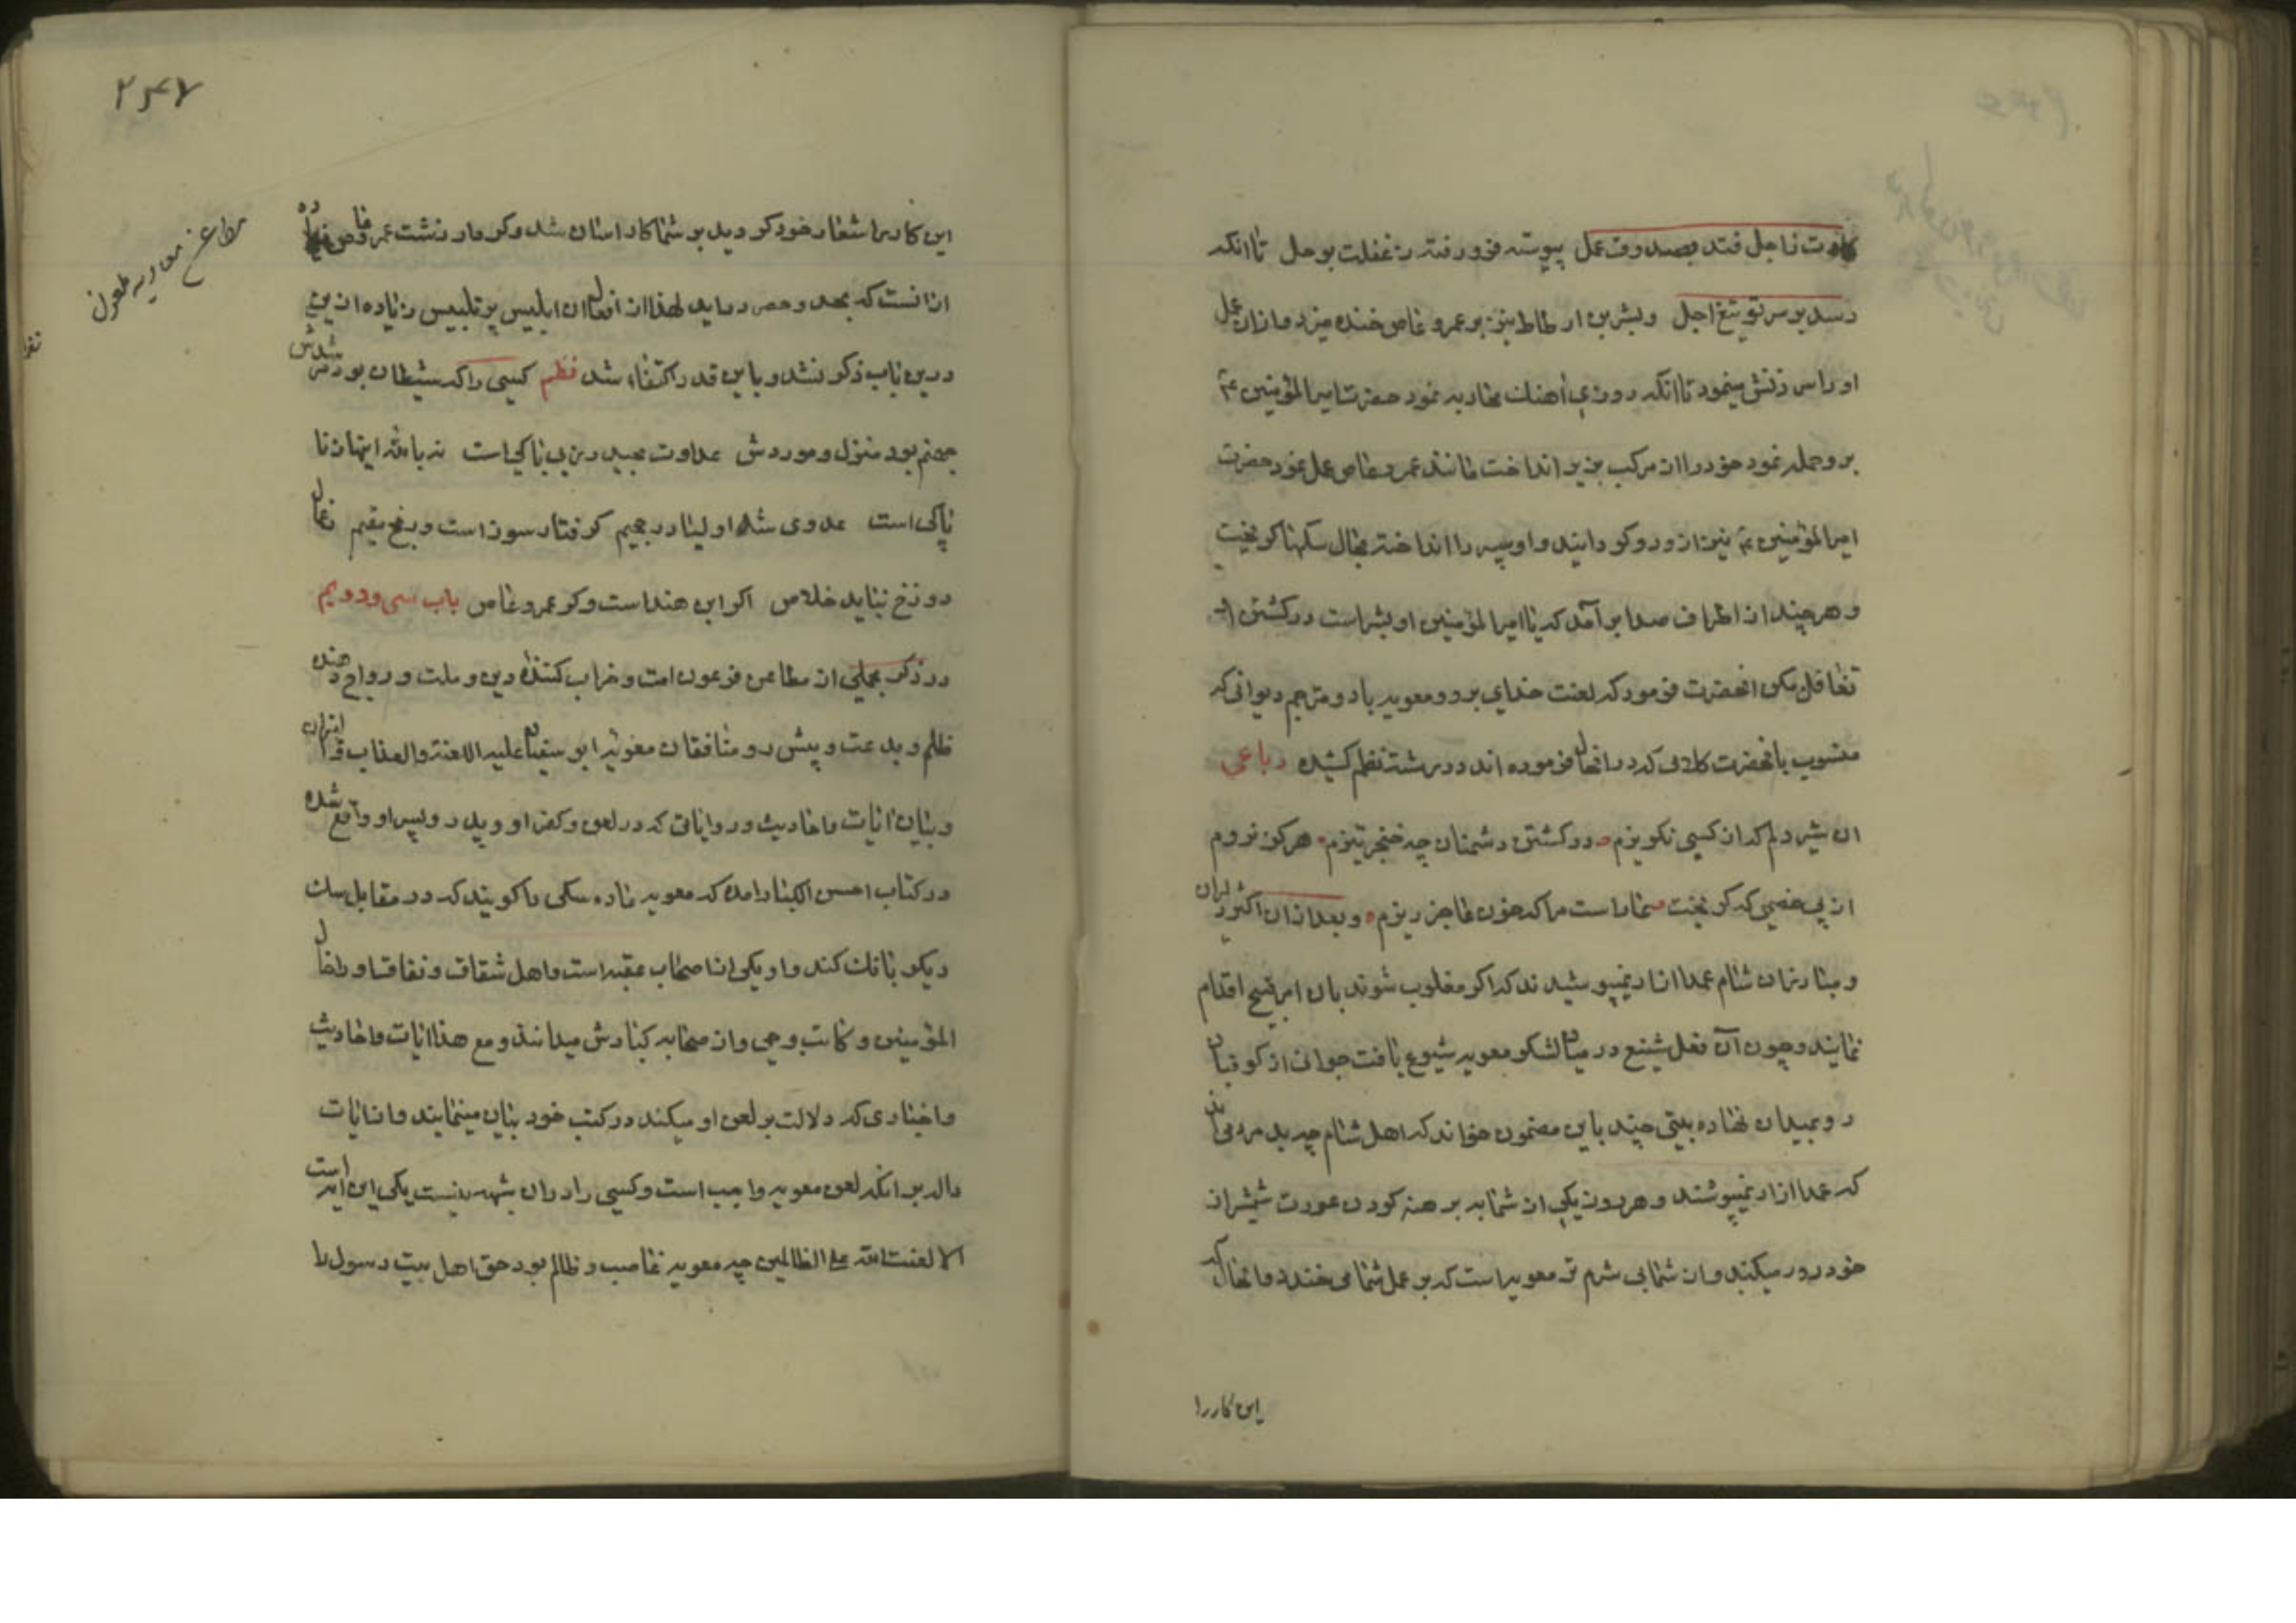 رسد بر سر تو تیغ اجل و بشر بن ارطاط نیز بر عمرو عاص خنده میزد و از ان عمل
او را سرزنش مینمود تا انکه روزی اهنك محاربه نمود حضرت امیر المؤمنین ع
بر و حمله نمود خود را از مرکب بزیر انداخت مانند عمرو عاص عمل نمود حضرت
امیر المؤمنین نیز از و رو کردانید و او سپر را انداخته بحال سکها کریخت
و هر چند از اطراف صدا بر آمد که یا امیر المؤمنین او بشر است در کشتن او
تغافل مکن انحضرت فرمود که لعنت خدای بر و و معویه باد و مترجم دیوانی که
منسوب بانحضرت کلامی که در انحال فرموده اند در رشته نظم کشیده رباعی
ان شیر دلم که از کسی نکریزم در کشتن دشمنان چه خنجر تیزم هرکز نروم
از پی خصمی که کریخت عار است مرا که خون عاجز ریزم و بعد از ان اکثر دلیران
و مبارزان شام عمدا ازار نمیپوشیدند که اکر مغلوب شوند بان امر قبیح اقدام
نمایند و چون آن فعل شنیع در میان لشکر معویه شیوع یافت جوانی از کوفیان
رو بمیدان نهاده بیتی چند باین مضمون خواند که اهل شام چه بد مردمی اند
که عمدا ازار نمیپوشند و هر روز یکی از شما به برهنه کردن عورت شمشیر از
خود دور میکند و از شما بی شرم تر معویه است که بر عمل شما می خندد و انحال که
این کار را
۲۳۴۷
این کار را شعار خود کردید بر شما کار اسان شد و کردار زشت عمرو عاص زیاده
از انست که بحد و حصر در اید لهذا از افعال ان ابلیس پر تلبیس زیاده از این
درین باب ذکر نشد و باین قدر اکتفاء شد نظم کسی را که شیطان بود مرشدش
جهنم بود منزل و موردش عداوت بحیدر ز بی باکی است نه بالله اینها ز نا
پاکی است عدوی شه اولیا در جحیم کرفتار سوز است و رنج مقیم فعال
دوزخ نیابد خلاص اکر ابن هند است و کر عمرو عاص باب سی و دویم
در ذکر مجملی از مطاعن فرعون امت و خراب کننده دین و ملت و رواج دهنده
ظلم و بدعت و پیش رو منافقان معویه ابو سفیان علیه اللعنة و العذاب و النیران
و بیان ایات و احادیث و روایاتی که در لعن و کفر او و پدر و پسر او واقع شده
در کتاب احسن الکبار امده که معویه ماده سکی را کویند که در مقابل سك
دیکر بانك کند و او یکی از اصحاب عقبه است و اهل شقاق و نفاق او را خال
المؤمنین و کاتب وحی و از صحابه کبارش میدانند و مع هذا ایات و احادیث
و اخباری که دلالت بر لعن او میکند در کتب خود بیان مینمایند و از ایات
دال بر انکه لعن معویه واجب است و کسی را در ان شبهه نیست یکی این ایه است
الا لعنت الله علی الظالمین چه معویه غاصب و ظالم بود حق اهل بیت رسول را